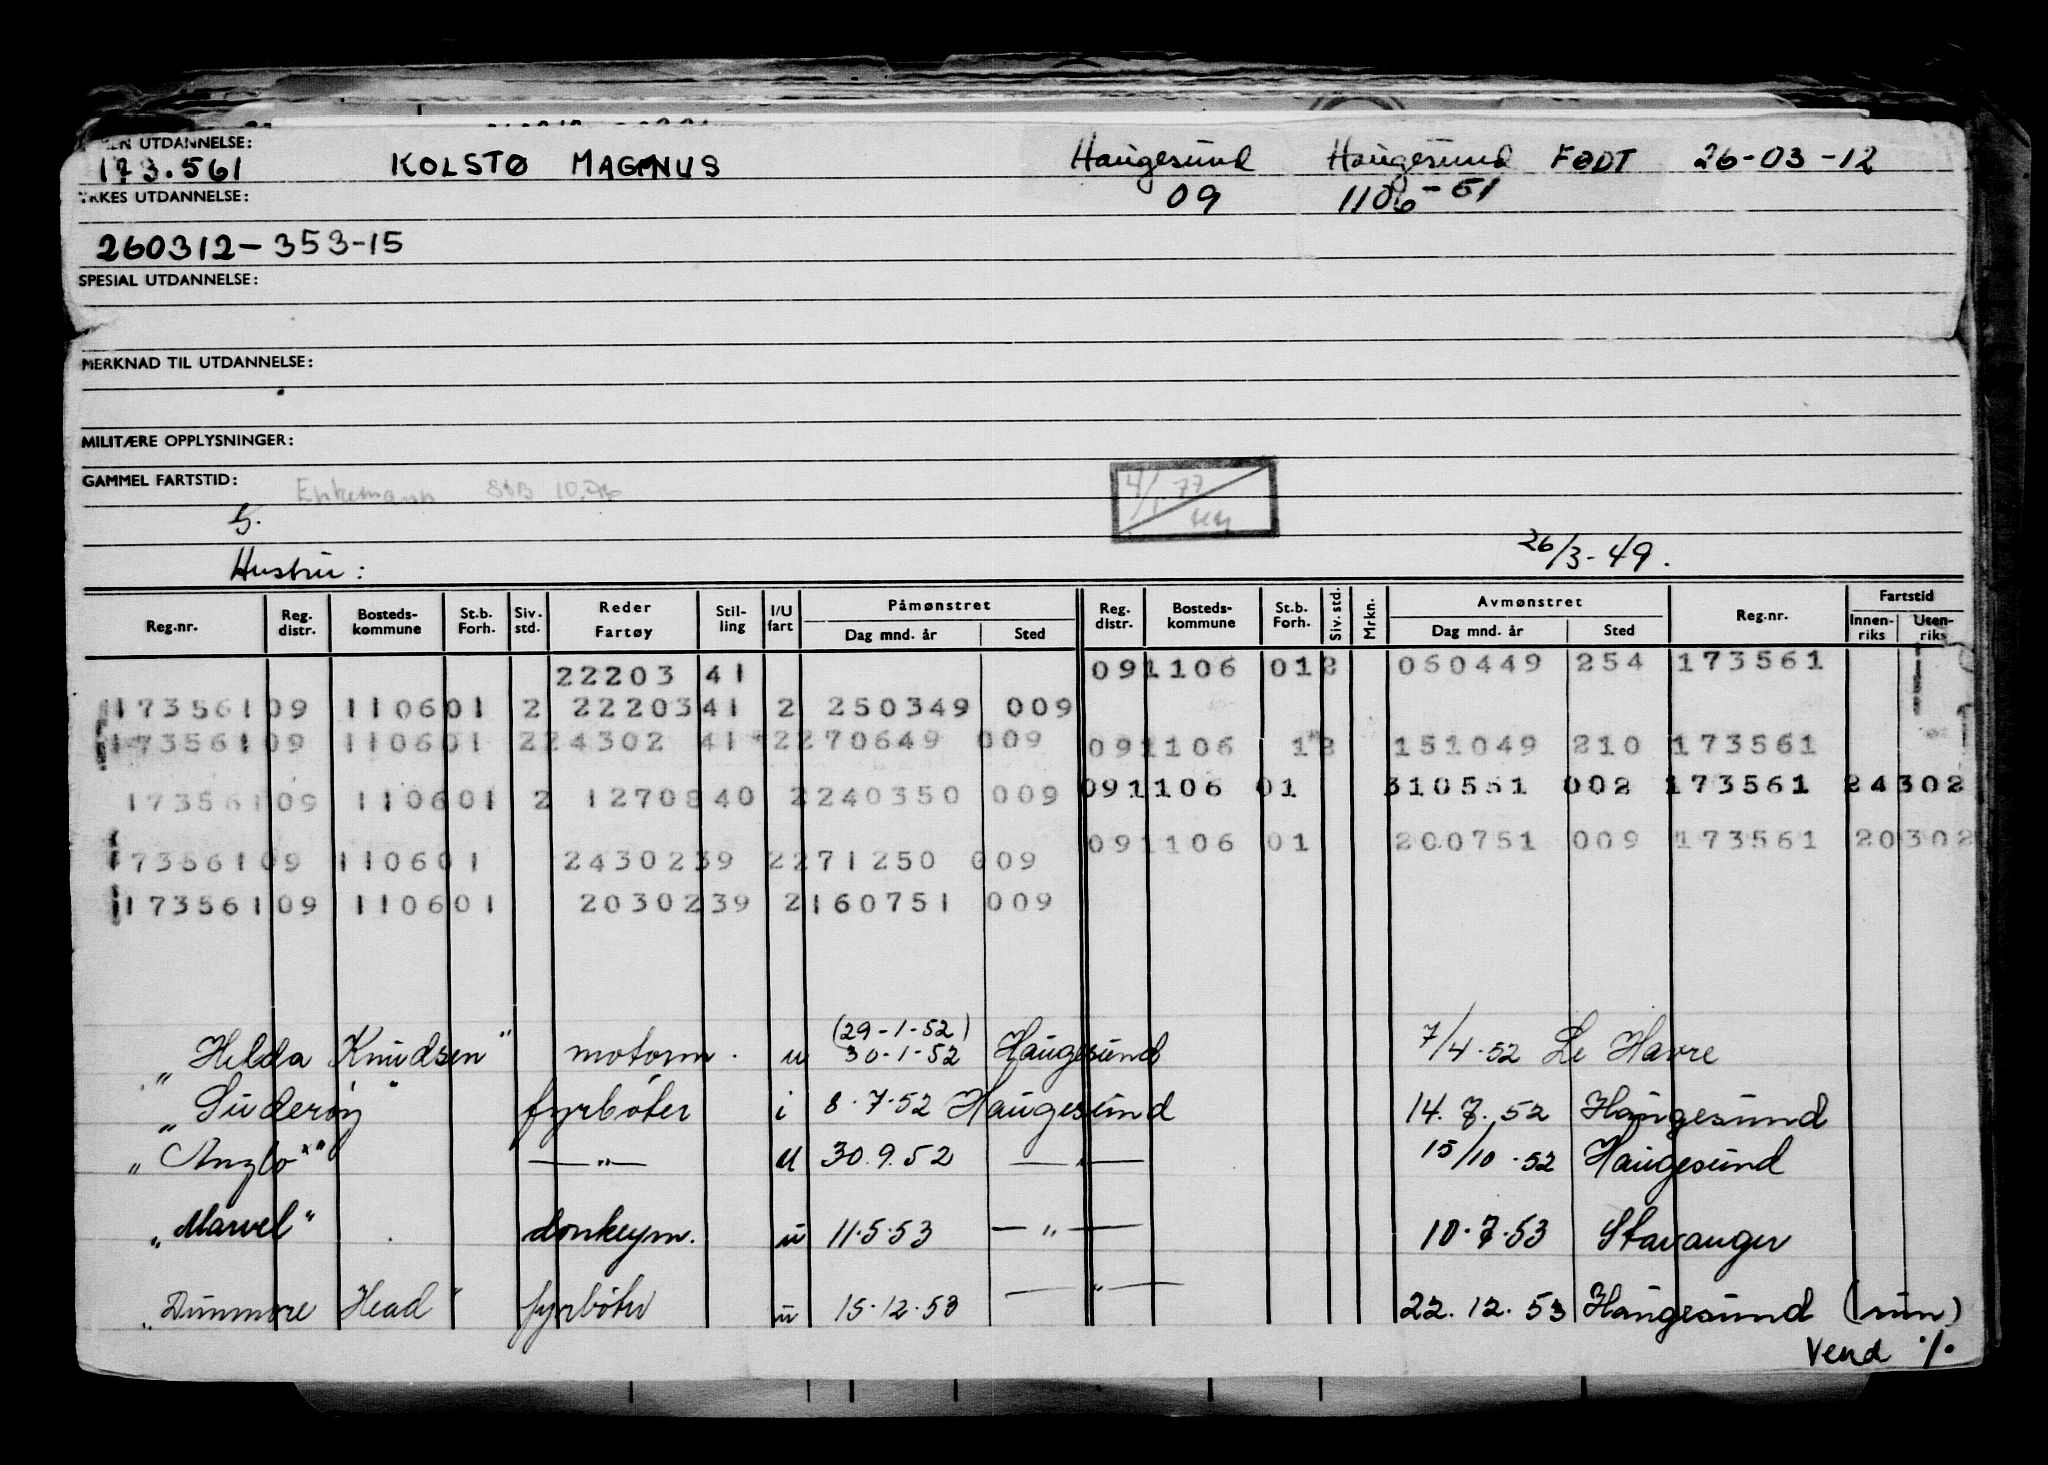 UTDANNELSE:
173.561 KOLSTØ MAGNUS Haugesund Haugesund FØDT 26-03-12
YRKES UTDANNELSE: 09 1106-51
260312-353-15
SPESIAL UTDANNELSE:
MERKNAD TIL UTDANNELSE:
MILITÆRE OPPLYSNINGER:
GAMMEL FARTSTID: Enkemann 10.76 4/1 77
G.
Hustru: 26/3-49.
Reg.nr. Reg. distr. Bosteds-kommune St.b. Forh. Siv. std. Reder Fartøy Stil-ling I/U fart Påmønstret Dag mnd. år Sted Reg. distr. Bosteds-kommune St.b. Forh. Siv. std. Mrkn. Avmønstret Dag mnd. år Sted Reg.nr. Fartstid Innen-riks Uten-riks
22203 41 091106 012 060449 254 173561
17356109 110601 2 2220341 2 250349 009
17356109 110601 224302 41 2270649 009 091106 1 2 151049 210 173561
17356109 110601 2 1270840 2240350 009 091106 01 310551 002 173561 24302
17356109 110601 2430239 2271250 009 091106 01 200751 009 173561 20302
17356109 110601 2030239 2160751 009
(29-1-52)
„Hilda Knudsen" motorm. u 30-1-52 Haugesund 7/4-52 Le Havre
„Suderøy" fyrbøter i 8.7.52 Haugesund 14.7.52 Haugesund
„Anglo" —"— u 30.9.52 —"— 15/10.52 Haugesund
„Marvel" donkeym. u 11.5.53 —"— 10.7.53 Stavanger
„Dunmore Head" fyrbøter u 15.12.53 —"— 22.12.53 Haugesund (run)
Vend ./.